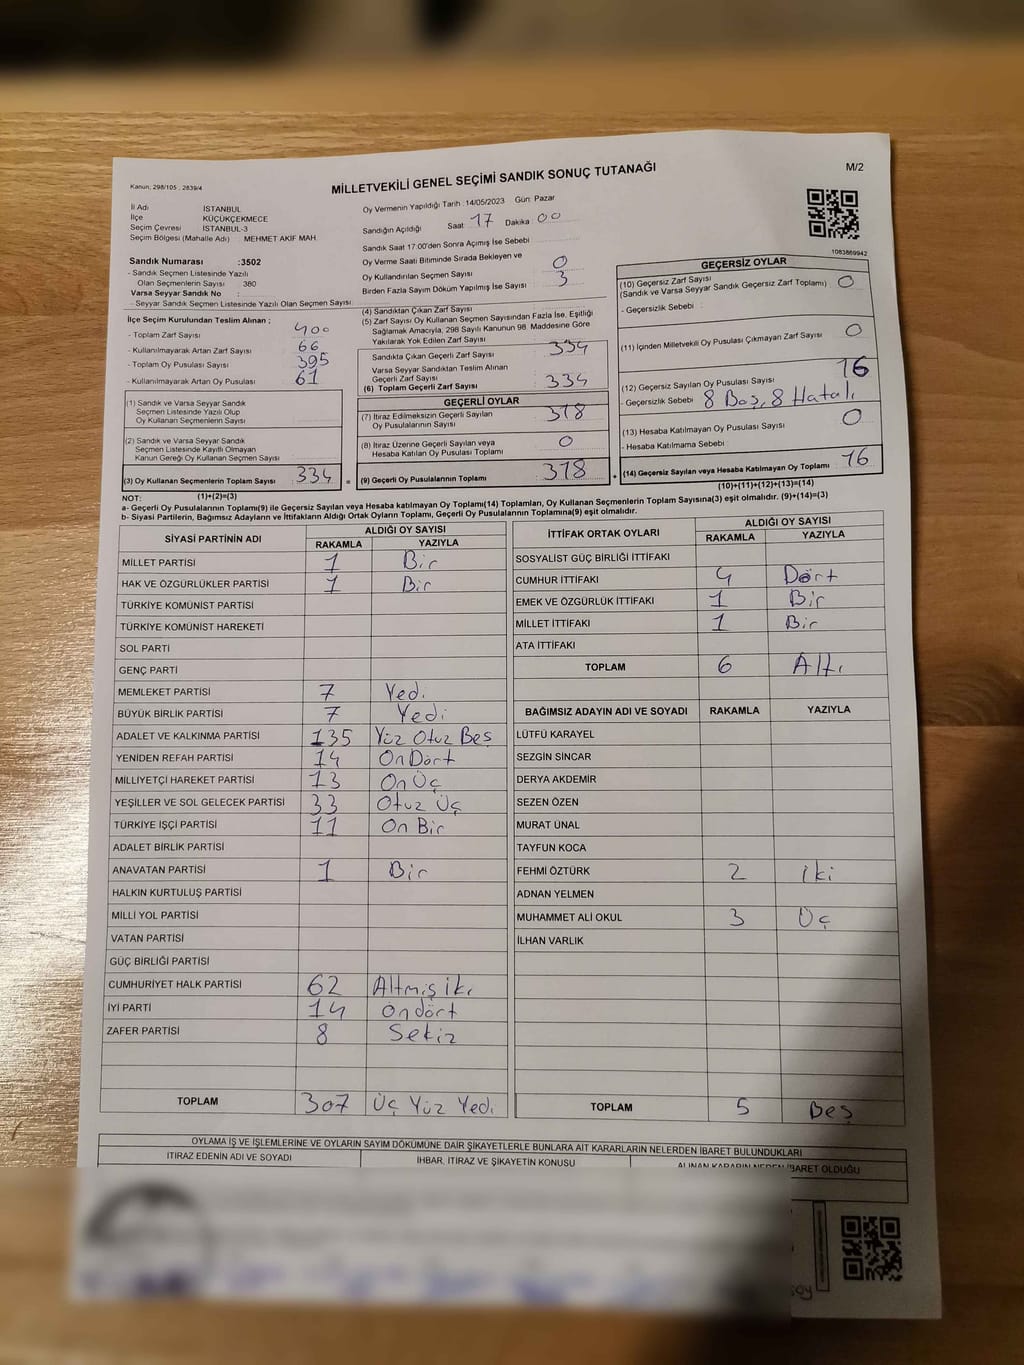 Kanun; 298/105 , 2839/4
MİLLETVEKİLİ GENEL SEÇİMİ SANDIK SONUÇ TUTANAĞI
M/2
İl Adı İSTANBUL
İlçe KÜÇÜKÇEKMECE
Seçim Çevresi İSTANBUL-3
Seçim Bölgesi (Mahalle Adı) MEHMET AKİF MAH.
Oy Vermenin Yapıldığı Tarih :14/05/2023 Gün: Pazar
Sandığın Açıldığı Saat 17 Dakika 00
Sandık Saat 17:00'den Sonra Açımış İse Sebebi
Oy Verme Saati Bitiminde Sırada Bekleyen ve
Oy Kullandırılan Seçmen Sayısı 0
Birden Fazla Sayım Döküm Yapılmış İse Sayısı 3
1083869942
Sandık Numarası :3502
- Sandık Seçmen Listesinde Yazılı
Olan Seçmenlerin Sayısı 380
Varsa Seyyar Sandık No :
- Seyyar Sandık Seçmen Listesinde Yazılı Olan Seçmen Sayısı
İlçe Seçim Kurulundan Teslim Alınan :
- Toplam Zarf Sayısı 400
- Kullanılmayarak Artan Zarf Sayısı 66
- Toplam Oy Pusulası Sayısı 395
- Kullanılmayarak Artan Oy Pusulası 61
(1) Sandık ve Varsa Seyyar Sandık
Seçmen Listesinde Yazılı Olup
Oy Kullanan Seçmenlerin Sayısı
(2) Sandık ve Varsa Seyyar Sandık
Seçmen Listesinde Kayıtlı Olmayan
Kanun Gereği Oy Kullanan Seçmen Sayısı
(3) Oy Kullanan Seçmenlerin Toplam Sayısı 334 =
(1)+(2)=(3)
(4) Sandıktan Çıkan Zarf Sayısı
(5) Zarf Sayısı Oy Kullanan Seçmen Sayısından Fazla İse, Eşitliği
Sağlamak Amacıyla, 298 Sayılı Kanunun 98. Maddesine Göre
Yakılarak Yok Edilen Zarf Sayısı
Sandıkta Çıkan Geçerli Zarf Sayısı 334
Varsa Seyyar Sandıktan Teslim Alınan
Geçerli Zarf Sayısı
(6) Toplam Geçerli Zarf Sayısı 334
GEÇERLİ OYLAR
(7) İtiraz Edilmeksizin Geçerli Sayılan
Oy Pusulalarının Sayısı 318
(8) İtiraz Üzerine Geçerli Sayılan veya
Hesaba Katılan Oy Pusulası Toplamı 0
(9) Geçerli Oy Pusulalarının Toplamı 318 +
GEÇERSİZ OYLAR
(10) Geçersiz Zarf Sayısı
(Sandık ve Varsa Seyyar Sandık Geçersiz Zarf Toplamı) 0
- Geçersizlik Sebebi :
(11) İçinden Milletvekili Oy Pusulası Çıkmayan Zarf Sayısı 0
(12) Geçersiz Sayılan Oy Pusulası Sayısı 16
- Geçersizlik Sebebi 8 Boş, 8 Hatalı
(13) Hesaba Katılmayan Oy Pusulası Sayısı 0
- Hesaba Katılmama Sebebi
(14) Geçersiz Sayılan veya Hesaba Katılmayan Oy Toplamı 16
(10)+(11)+(12)+(13)=(14)
NOT:
a- Geçerli Oy Pusulalarının Toplamı(9) ile Geçersiz Sayılan veya Hesaba katılmayan Oy Toplamı(14) Toplamları, Oy Kullanan Seçmenlerin Toplam Sayısına(3) eşit olmalıdır. (9)+(14)=(3)
b- Siyasi Partilerin, Bağımsız Adayların ve İttifakların Aldığı Ortak Oyların Toplamı, Geçerli Oy Pusulalarının Toplamına(9) eşit olmalıdır.
SİYASİ PARTİNİN ADI ALDIĞI OY SAYISI
RAKAMLA YAZIYLA
MİLLET PARTİSİ 1 Bir
HAK VE ÖZGÜRLÜKLER PARTİSİ 1 Bir
TÜRKİYE KOMÜNİST PARTİSİ
TÜRKİYE KOMÜNİST HAREKETİ
SOL PARTİ
GENÇ PARTİ
MEMLEKET PARTİSİ 7 Yedi
BÜYÜK BİRLİK PARTİSİ 7 Yedi
ADALET VE KALKINMA PARTİSİ 135 Yüz Otuz Beş
YENİDEN REFAH PARTİSİ 14 On Dört
MİLLİYETÇİ HAREKET PARTİSİ 13 On Üç
YEŞİLLER VE SOL GELECEK PARTİSİ 33 Otuz Üç
TÜRKİYE İŞÇİ PARTİSİ 11 On Bir
ADALET BİRLİK PARTİSİ
ANAVATAN PARTİSİ 1 Bir
HALKIN KURTULUŞ PARTİSİ
MİLLİ YOL PARTİSİ
VATAN PARTİSİ
GÜÇ BİRLİĞİ PARTİSİ
CUMHURİYET HALK PARTİSİ 62 Altmış iki
İYİ PARTİ 14 Ondört
ZAFER PARTİSİ 8 Sekiz
TOPLAM 307 Üç Yüz Yedi
İTTİFAK ORTAK OYLARI ALDIĞI OY SAYISI
RAKAMLA YAZIYLA
SOSYALİST GÜÇ BİRLİĞİ İTTİFAKI
CUMHUR İTTİFAKI 4 Dört
EMEK VE ÖZGÜRLÜK İTTİFAKI 1 Bir
MİLLET İTTİFAKI 1 Bir
ATA İTTİFAKI
TOPLAM 6 Altı
BAĞIMSIZ ADAYIN ADI VE SOYADI RAKAMLA YAZIYLA
LÜTFÜ KARAYEL
SEZGİN SİNCAR
DERYA AKDEMİR
SEZEN ÖZEN
MURAT ÜNAL
TAYFUN KOCA
FEHMİ ÖZTÜRK 2 iki
ADNAN YELMEN
MUHAMMET ALİ OKUL 3 Üç
İLHAN VARLIK
TOPLAM 5 Beş
OYLAMA İŞ VE İŞLEMLERİNE VE OYLARIN SAYIM DÖKÜMÜNE DAİR ŞİKAYETLERLE BUNLARA AİT KARARLARIN NELERDEN İBARET BULUNDUKLARI
İTİRAZ EDENİN ADI VE SOYADI İHBAR, İTİRAZ VE ŞİKAYETİN KONUSU ALINAN KARARIN NEDEN İBARET OLDUĞU